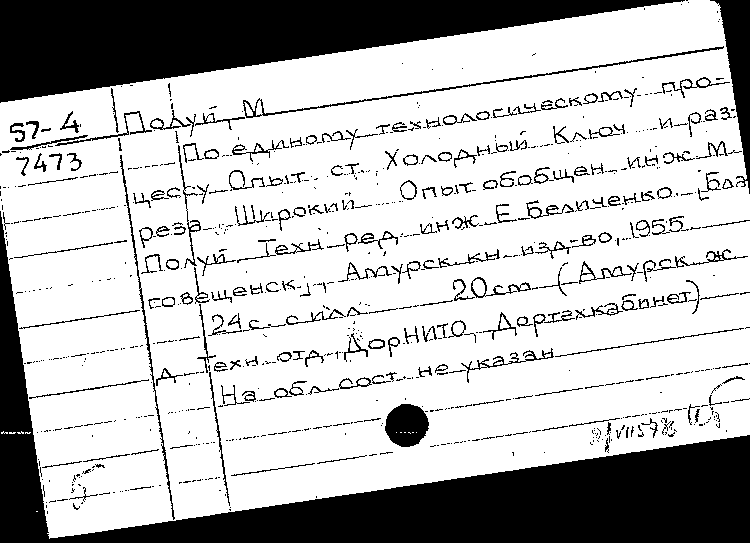 57-4
7473
Полуй, М
По единому технологическому про-
цессу Опыт ст. Холодный Ключ и раз-
реза Широкий Опыт обобщен инж М.
Полуй. Техн ред инж Е Беличенко. [Бла-
говещенск], Амурск. кн. изд-во, 1955
24с. с илл 20 cm (Амурск ж.
д. Техн. отд ДорНИТО, Дортехкабинет)
На обл сост. не указан